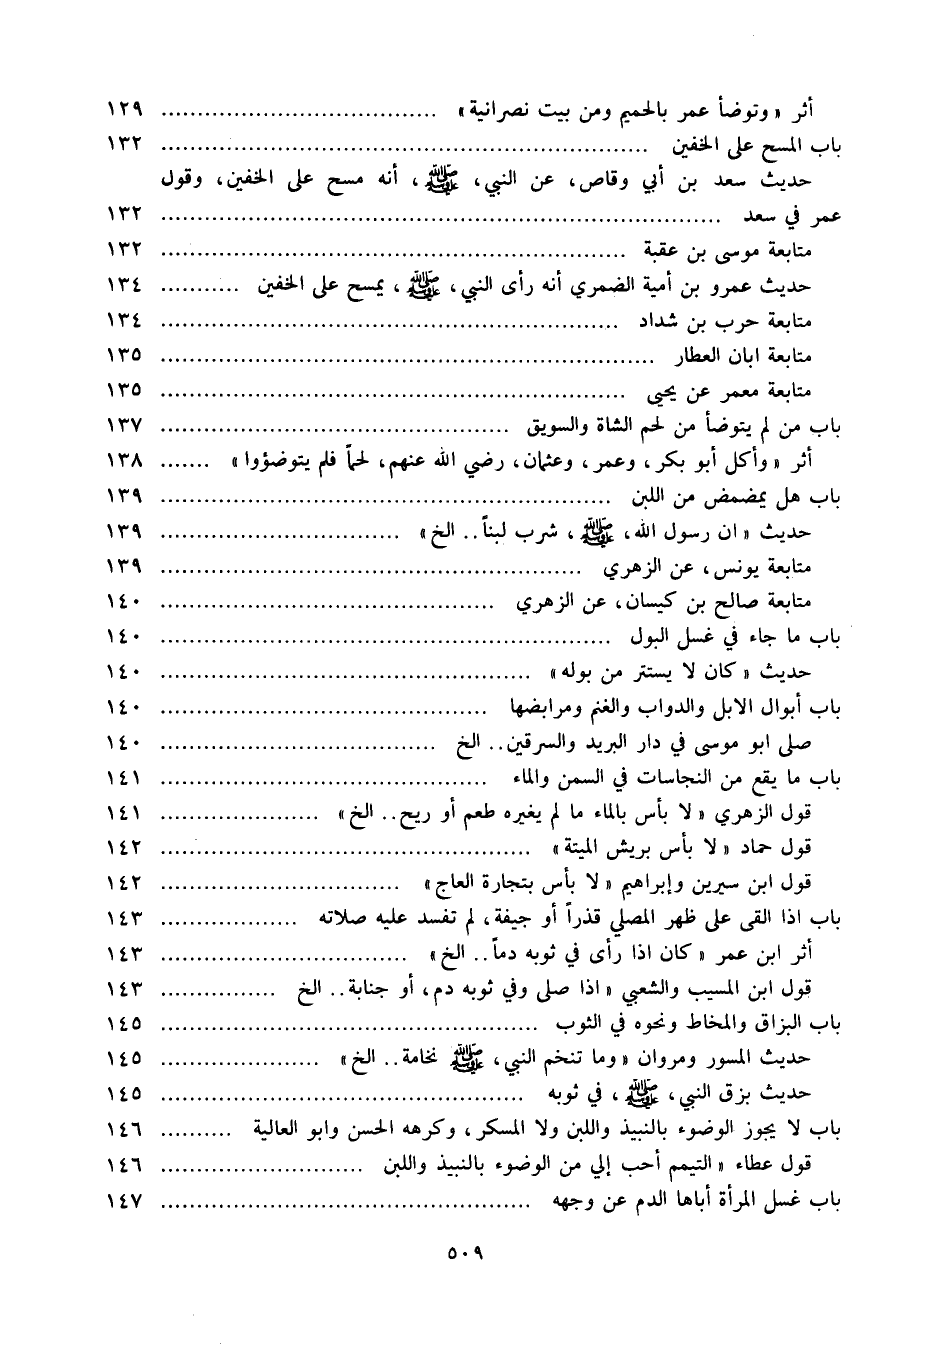 أثر «وتوضأ عمر بالحميم ومن بيت نصرانية» ..................................... ١٢٩
باب المسح على الخفين ................................................................ ١٣٢
حديث سعد بن أبي وقاص، عن النبي، ﷺ، أنه مسح على الخفين، وقول
عمر في سعد ......................................................................... ١٣٢
متابعة موسى بن عقبة ............................................................. ١٣٢
حديث عمرو بن أمية الضمري أنه رأى النبي، ﷺ، يمسح على الخفين ........... ١٣٤
متابعة حرب بن شداد ............................................................ ١٣٤
متابعة ابان العطار ................................................................. ١٣٥
متابعة معمر عن يحيى ............................................................. ١٣٥
باب من لم يتوضأ من لحم الشاة والسويق ............................................. ١٣٧
أثر «وأكل أبو بكر، وعمر، وعثمان، رضي الله عنهم، لحماً فلم يتوضؤوا» ....... ١٣٨
باب هل يمضمض من اللبن ........................................................... ١٣٩
حديث «ان رسول الله، ﷺ، شرب لبناً.. الخ» ................................ ١٣٩
متابعة يونس، عن الزهري ....................................................... ١٣٩
متابعة صالح بن كيسان، عن الزهري ............................................ ١٤٠
باب ما جاء في غسل البول ........................................................... ١٤٠
حديث «كان لا يستتر من بوله» ................................................. ١٤٠
باب أبوال الابل والدواب والغنم ومرابضها ........................................... ١٤٠
صلى ابو موسى في دار البريد والسرقين.. الخ ..................................... ١٤٠
باب ما يقع من النجاسات في السمن والماء ........................................... ١٤١
قول الزهري «لا بأس بالماء ما لم يغيره طعم أو ريح.. الخ» ..................... ١٤١
قول حماد «لا بأس بريش الميتة» ................................................. ١٤٢
قول ابن سيرين وإبراهيم «لا بأس بتجارة العاج» ................................ ١٤٢
باب اذا القى على ظهر المصلي قذراً أو جيفة، لم تفسد عليه صلاته .................. ١٤٣
أثر ابن عمر «كان اذا رأى في ثوبه دماً.. الخ» ................................. ١٤٣
قول ابن المسيب والشعبي «اذا صلى وفي ثوبه دم، أو جنابة.. الخ ............... ١٤٣
باب البزاق والمخاط ونحوه في الثوب .................................................. ١٤٥
حديث المسور ومروان «وما تنخم النبي، ﷺ نخامة.. الخ» ..................... ١٤٥
حديث بزق النبي، ﷺ، في ثوبه ................................................ ١٤٥
باب لا يجوز الوضوء بالنبيذ واللبن ولا المسكر، وكرهه الحسن وابو العالية .......... ١٤٦
قول عطاء «التيمم أحب إلي من الوضوء بالنبيذ واللبن ........................... ١٤٦
باب غسل المرأة أباها الدم عن وجهه ................................................. ١٤٧
٥٠٩